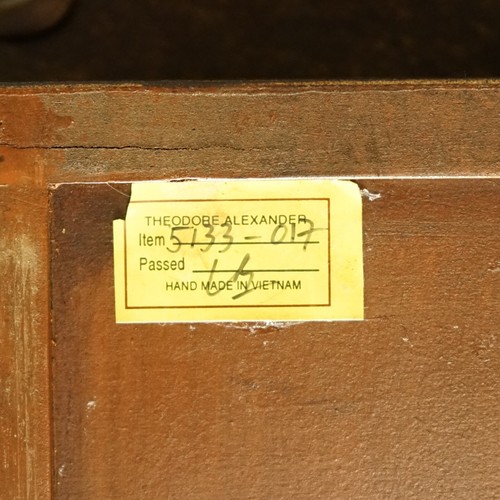 THEODORE ALEXANDER
Item 5133-017
Passed
HAND MADE IN VIETNAM